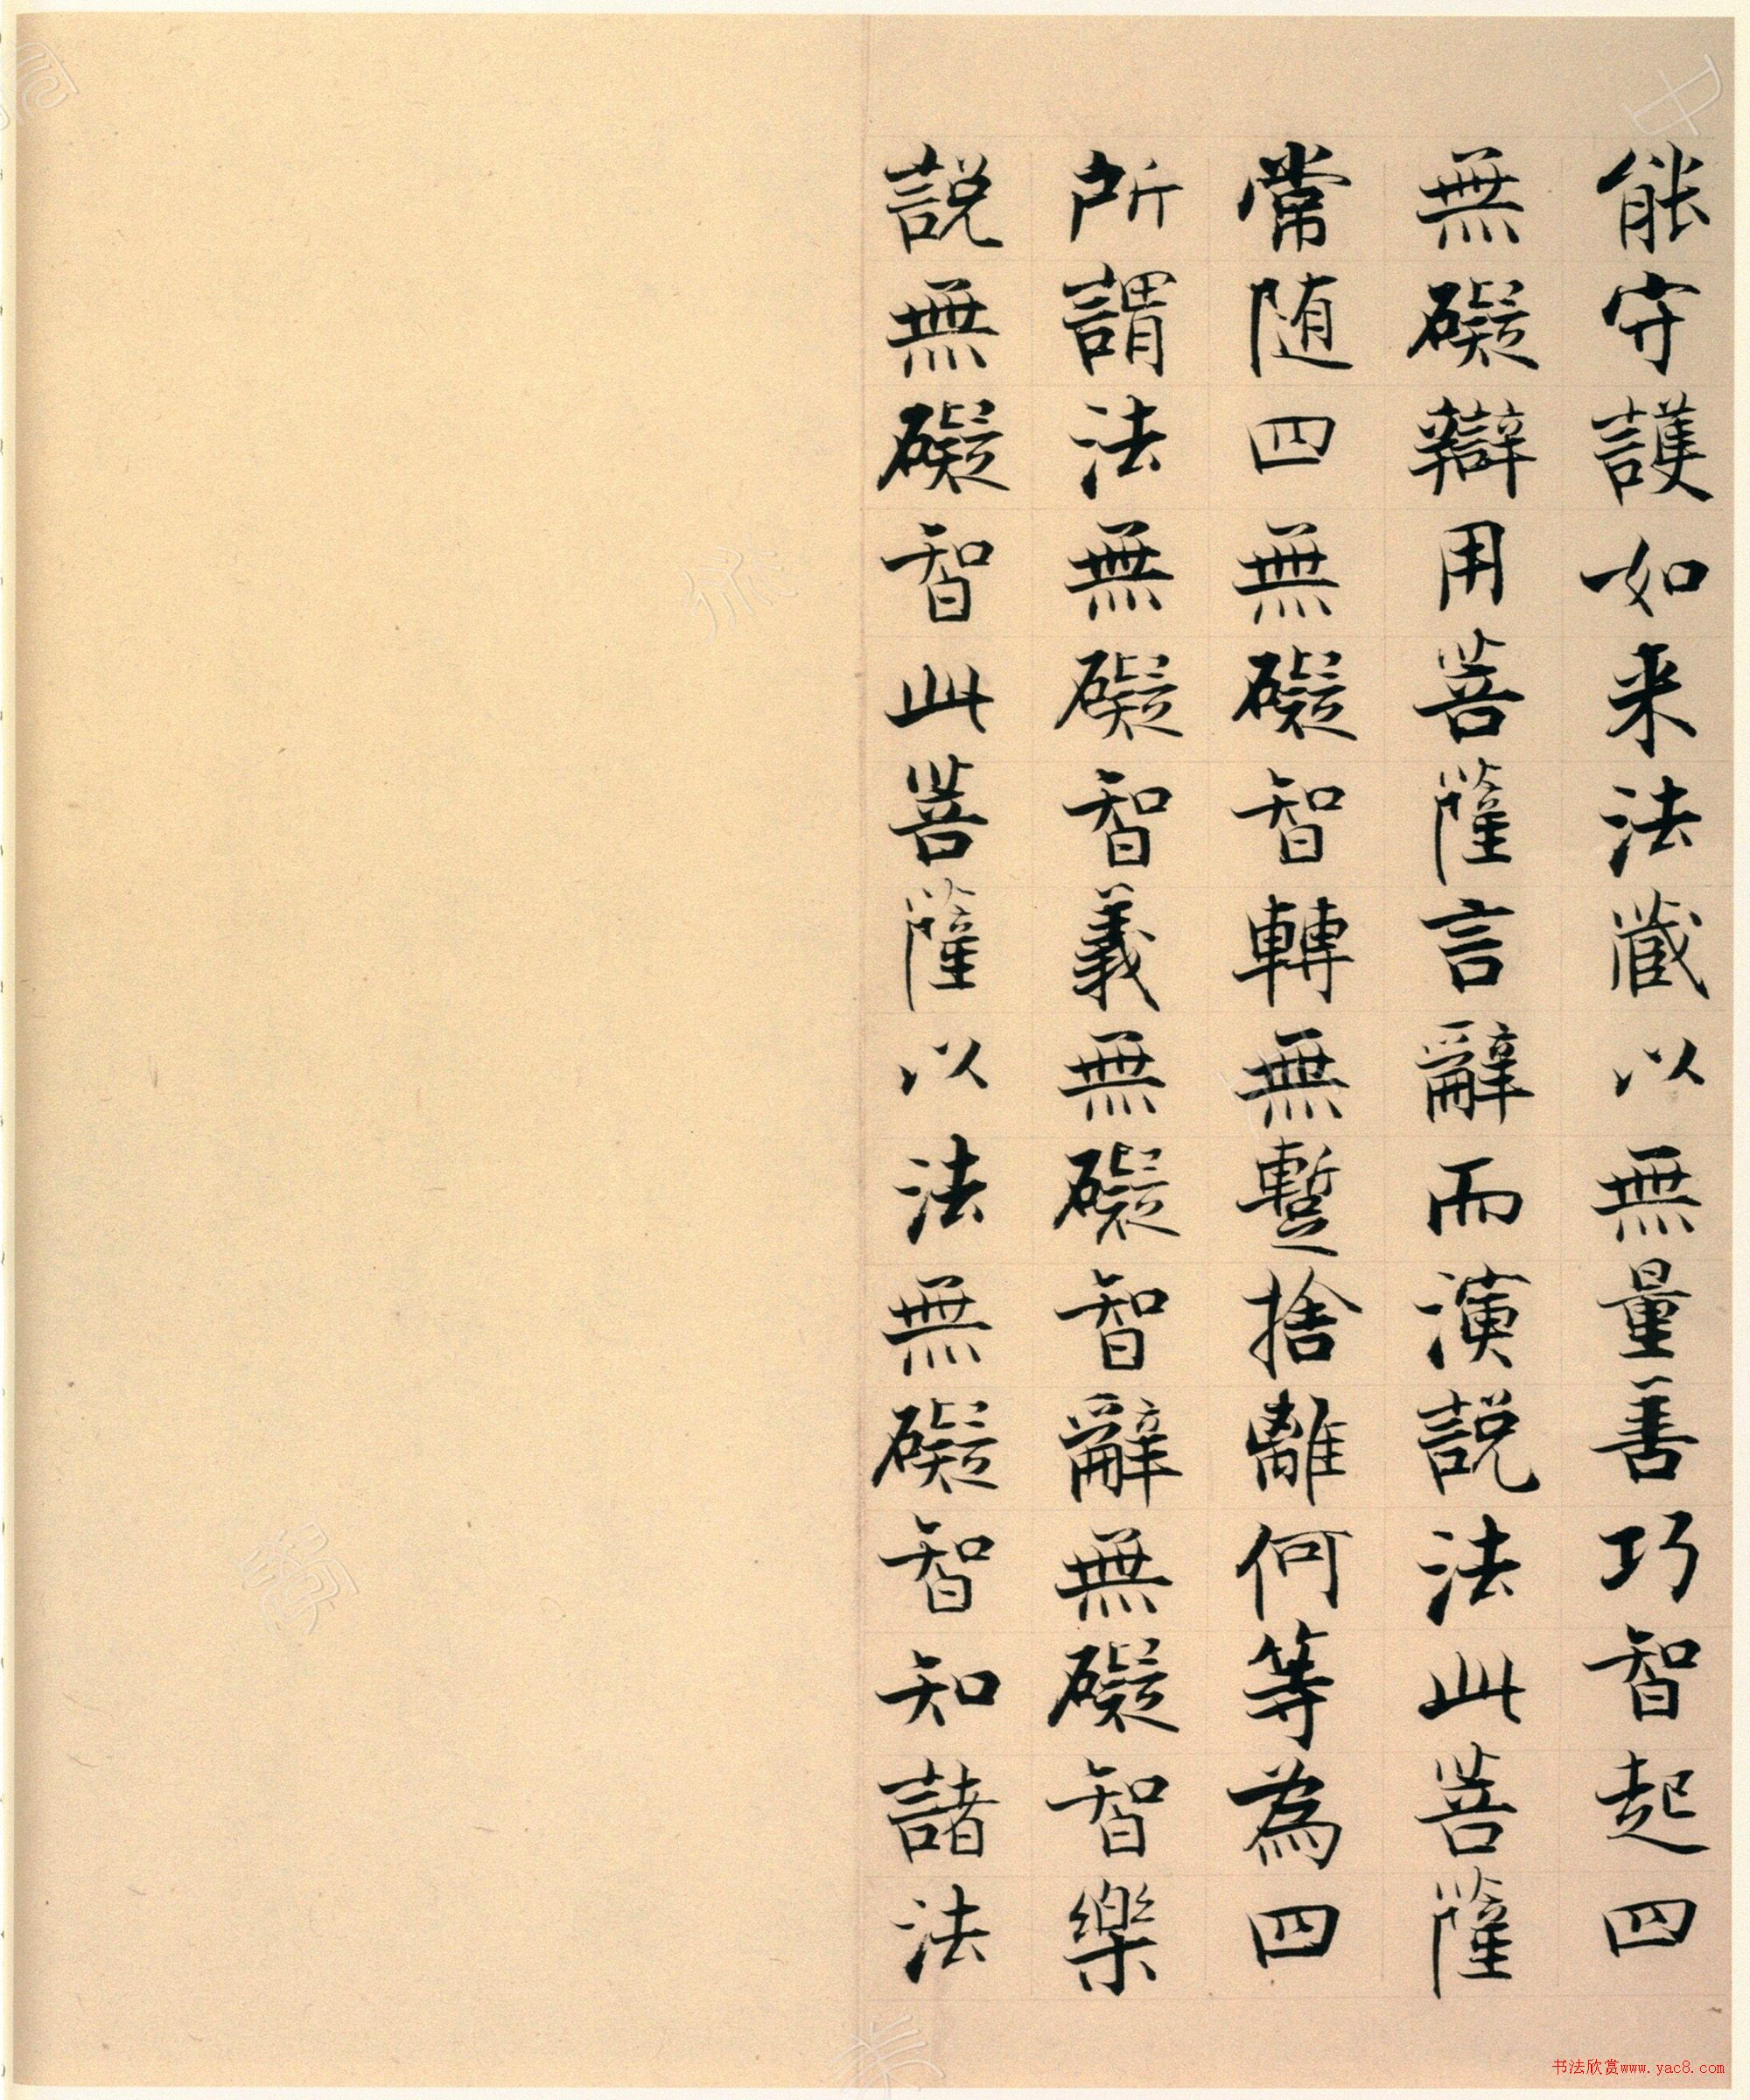 能守護如来法蔵以無量善巧智起四
無礙辯用菩薩言辭而演説法此菩薩
常随四無礙智轉無蹔捨離何等為四
所謂法無礙智義無礙智辭無礙智樂
説無礙智此菩薩以法無礙智知諸法
书法欣赏www.yac8.com